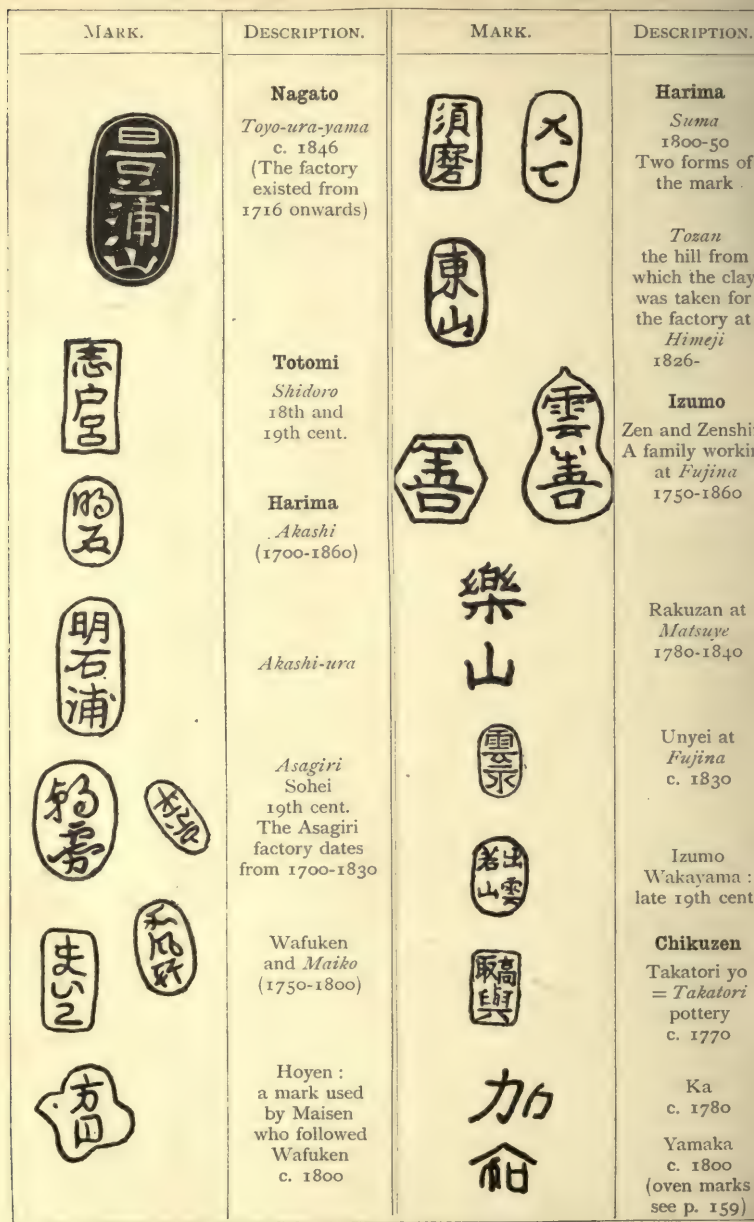 MARK.
DESCRIPTION.
浦山
Nagato
Toyo-ura-yama
c. 1846
(The factory
existed from
1716 onwards)
志戸呂
Totomi
Shidoro
18th and
19th cent.
明石
Harima
Akashi
(1700-1860)
明石浦
Akashi-ura
Asagiri
Sohei
19th cent.
The Asagiri
factory dates
from 1700-1830
Wafuken
and Maiko
(1750-1800)
Hoyen :
a mark used
by Maisen
who followed
Wafuken
c. 1800
MARK.
DESCRIPTION.
須磨
Harima
Suma
1800-50
Two forms of
the mark
東山
Tozan
the hill from
which the clay
was taken for
the factory at
Himeji
1826-
善
雲善
Izumo
Zen and
A family
at Fujina
1750-1860
樂山
Rakuzan at
Matsuye
1780-1840
雲永
Unyei at
Fujina
c. 1830
出雲
若山
Izumo
Wakayama :
late 19th cent
高取
Chikuzen
Takatori yo
= Takatori
pottery
c. 1770
加
Ka
c. 1780
Yamaka
c. 1800
(oven marks
see p. 159)